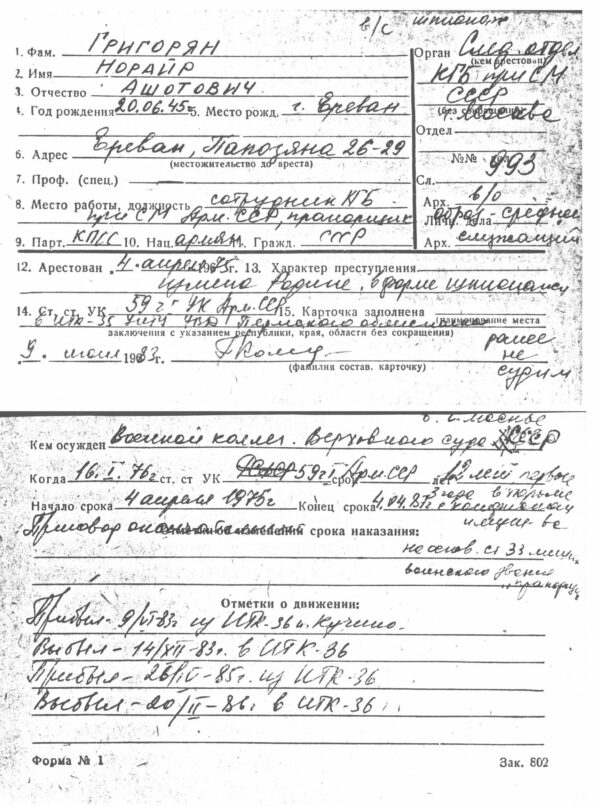 в/с шпионаж
1. Фам. ГРИГОРЯН
Орган След. отдел
(кем арестован)
2. Имя НОРАЙР
КГБ при СМ
3. Отчество АШОТОВИЧ
СССР
(без сокращения)
г. Москве
4. Год рождения 20.06.45г. 5. Место рожд. г. Ереван
Отдел
6. Адрес Ереван, Папозяна 26-29
(местожительство до ареста)
№№ 993
7. Проф. (спец.)
Сл.
8. Место работы, должность сотрудник КГБ
Арх. б/о
при СМ Арм. ССР, прапорщик
Личн. дела образ-среднее
9. Парт. КПСС 10. Нац. армян. 11. Гражд. СССР
Арх. служащий
12. Арестован „4. апреля 1975г. 13. Характер преступления
измена Родине, в форме шпионажа
14. Ст. ст. УК 59 г. I УК Арм.ССР 15. Карточка заполнена
(наименование места
в ИТК-35 Пермского
заключения с указанием республики, края, области без сокращения)
„9. июня 1983г.
(фамилия состав. карточку)
ранее
не
судим
Кем осужден Военной коллег. Верховного суда СССР
Когда 16. I. 76г. ст. ст УК 59 г I Арм.ССР срок 12 лет первые
3 года в тюрьме
Начало срока 4 апреля 1975г Конец срока 4.04.87г с конфискац
имущ-ва
Отметки об изменении срока наказания:
на основ. ст 33 лишен
воинского звания
„прапорщик
Отметки о движении:
Прибыл- 9/VI-83г из ИТК-36 п. Кучино.
Выбыл - 14/XII-83г. в ИТК-36
Прибыл - 26/IV-85г. из ИТК-36
Выбыл - 20/II-86г в ИТК-36
Форма № 1
Зак. 802